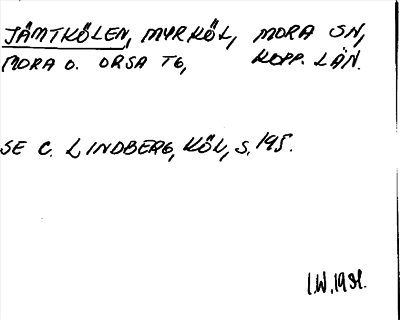 JÄMTKÖLEN, MYRKÖL, MORA SN,
MORA O. ORSA TG, KOPP. LÄN.
SE C. LINDBERG, KÖL, S. 195.
I.W. 1981.